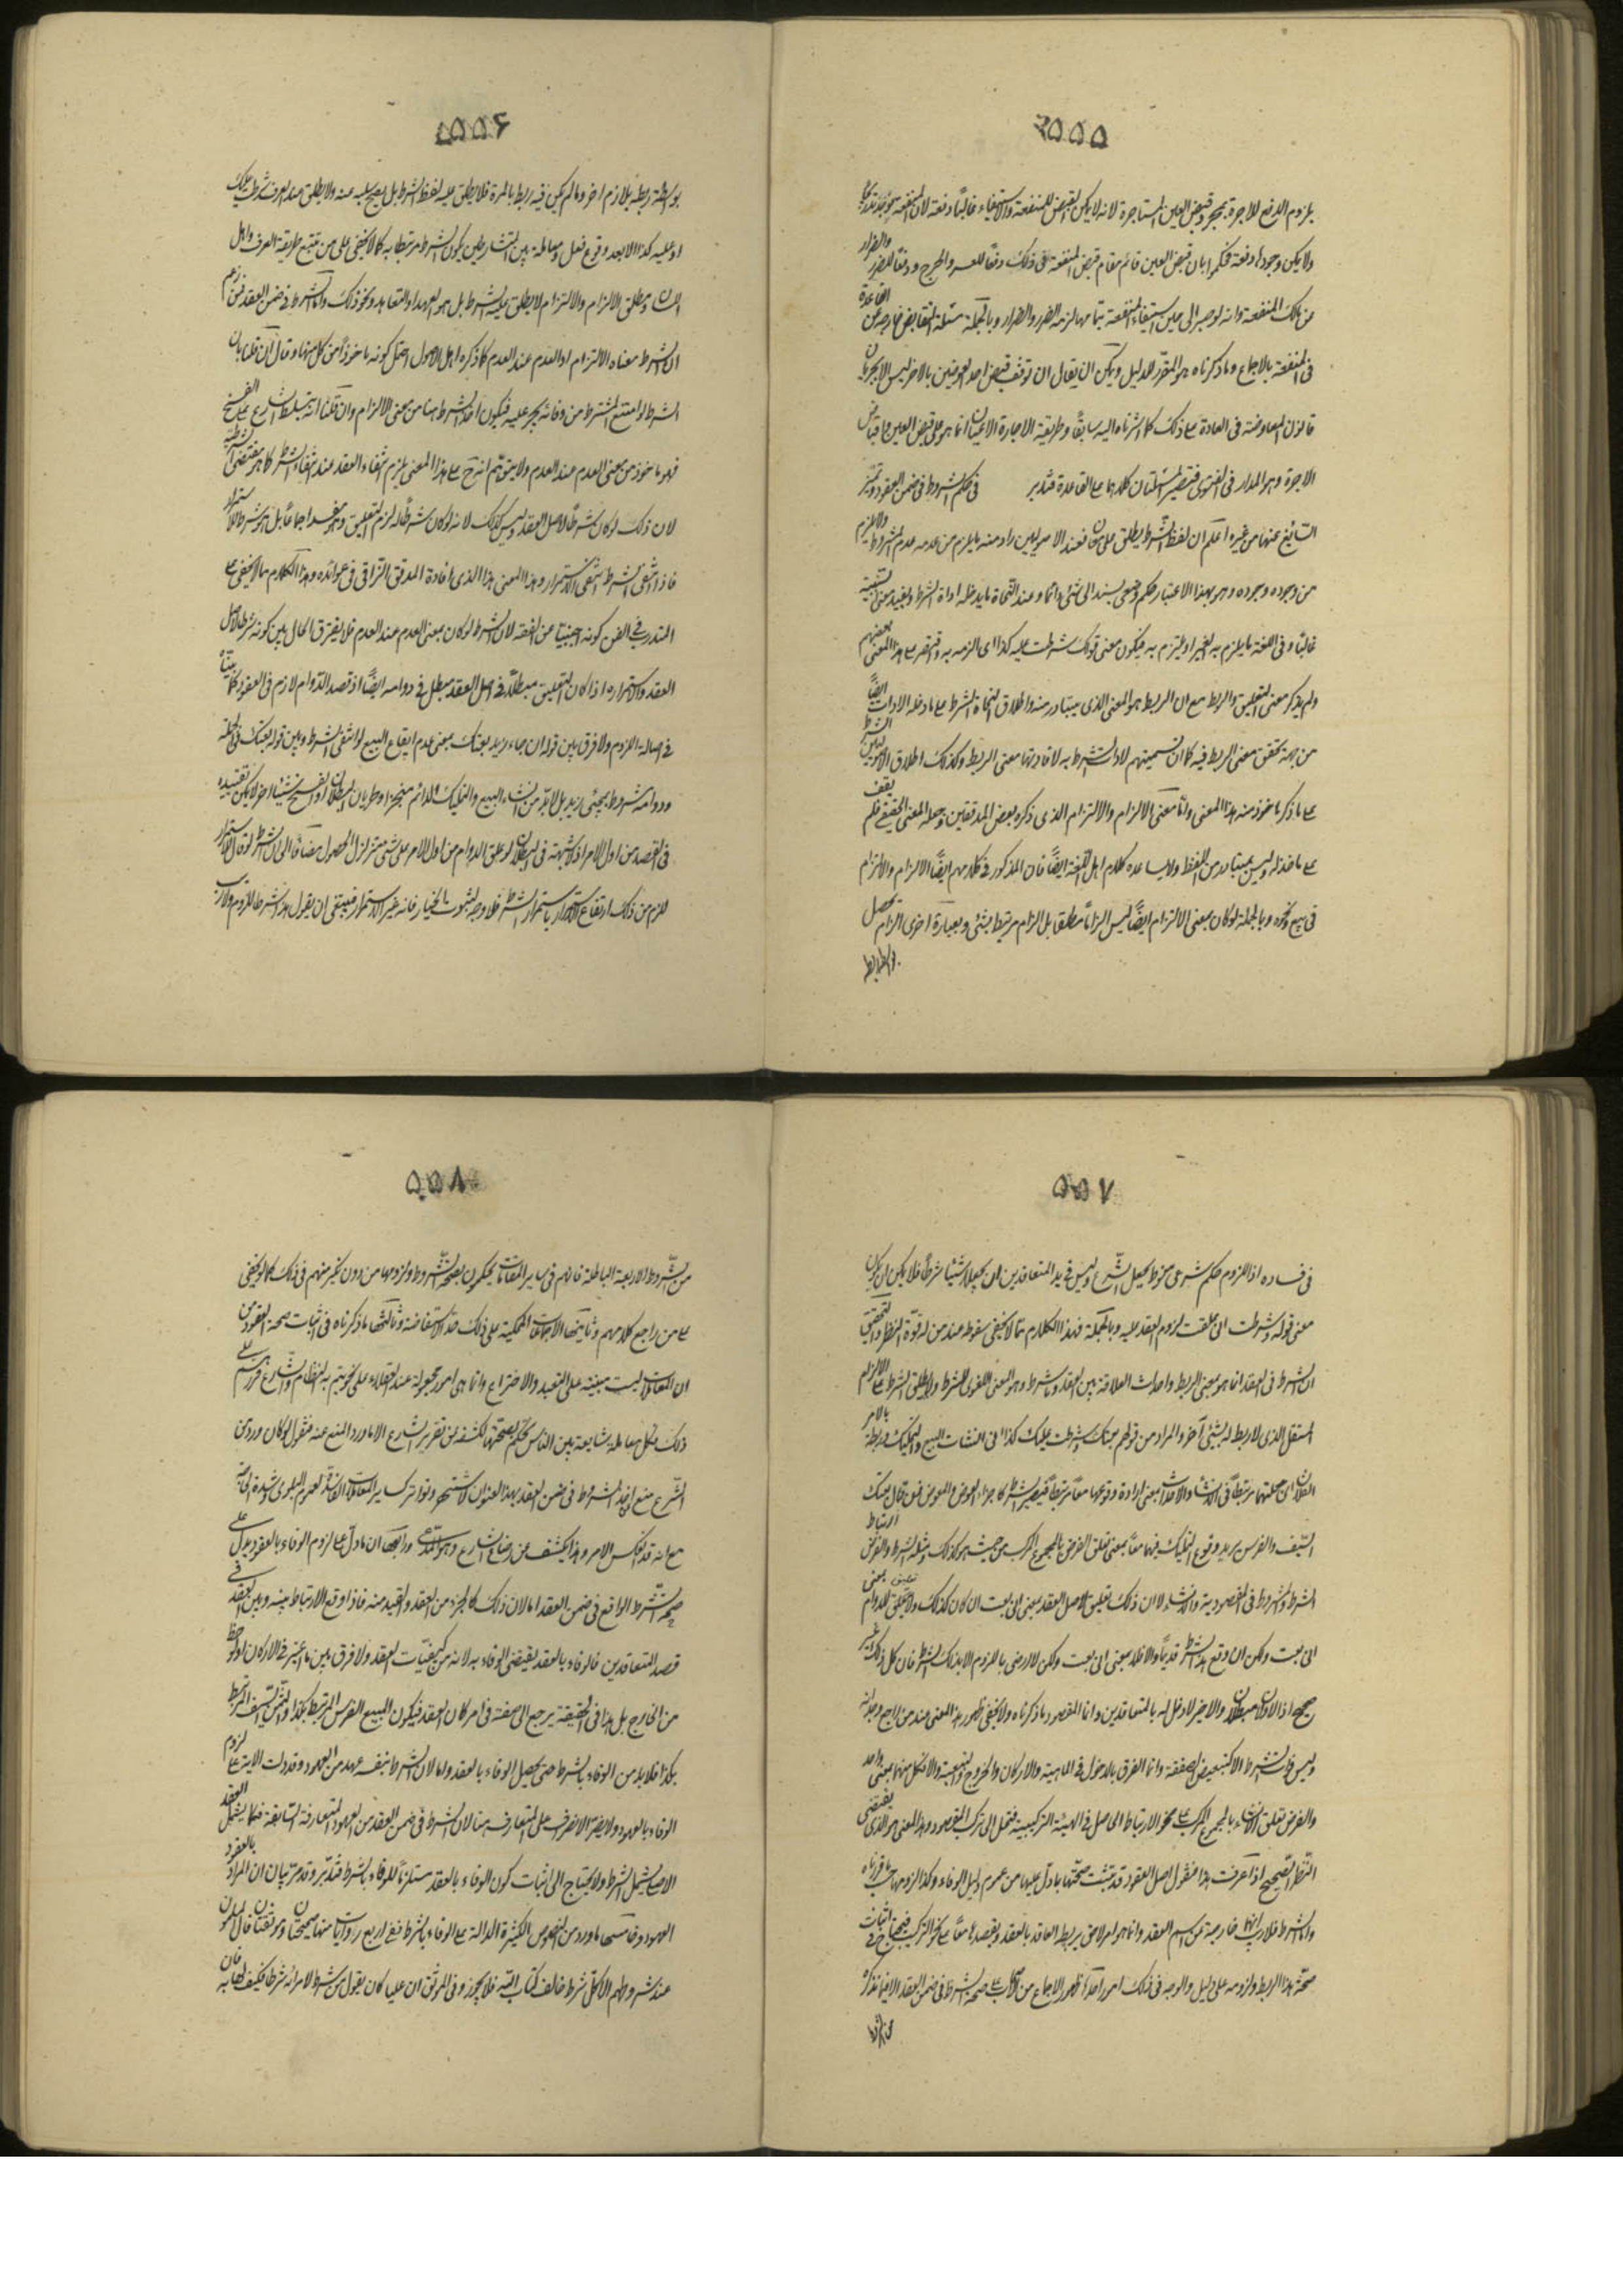 ۵۵۵
يلزم الدفع للاجرة بمجرد قبض العين المستاجرة لانه لا يمكن القبض للمنفعة والاستيفاء غالبًا دفعة لان المنفعة توجد تدريجًا
ولا يمكن وجودها دفعة فحكموا بان قبض العين قائم مقام قبض المنفعة فى ذلك دفعًا للعسر والحرج ودفعًا للضرر والضرار
عن مالك المنفعة وانه لو صبر الى حين استيفاء المنفعة بتمامها لزمه الضرر والضرار وبالجملة مسئلة التقابض خارجة عن القاعدة
فى المنفعة بالاجماع وما ذكرناه هو المقرر للدليل ويمكن ان يقال ان توقف قبض احد العوضين بالاخر ليس الا لجريان
قانون المعاوضة فى العادة على ذلك كما اشرناه اليه سابقًا وطريقة الاجارة الاعيان انما هو على قبض العين واقباض
الاجرة وهو المدار فى الفتوى فتصير المسئلتان كلاهما على القاعدة فتدبر فى حكم الشروط فى ضمن العقود وتميز
السائغ عنها من غيره اعلم ان لفظ الشرط يطلق على معان فعند الاصوليين يراد منه ما يلزم من عدمه عدم المشروط ولا يلزم
من وجوده وجوده وهو بهذا الاعتبار حكم وضعى يسند الى شئ دائما وعند النحاة ما يدخله اداة الشرط ويفيد معنى السببية
غالبًا وفى اللغة ما يلزم به الغير او يلتزم به فيكون معنى قولك شرطت عليه كذا اى الزمه به وقصر على هذا المعنى بعضهم
ولم يذكر معنى التعليق والربط مع ان الربط هو المعنى الذى يتبادر منه واطلاق النحاة الشرط على مدخوله الادات ايضًا
من جهة تحقق معنى الربط فيه كما ان تسميتهم لادات الشرط به لافادتها معنى الربط وكذلك اطلاق الاصوليين الشرط
على ما ذكر ماخوذ منه هذا المعنى واما معنى الالزام والالتزام الذى ذكره بعض المدققين وجعله المعنى الحقيقى فلم يقف
على ماخذ له وليس بمتبادر من اللفظ ولا يساعده كلام اهل اللغة ايضًا فان المذكور فى كلامهم ايضًا الالزام والالتزام
فى بيع ونحوه وبالجملة لو كان بمعنى الالتزام ايضًا ليس الزامًا مطلقا بل الزام مرتبط بشئ وبعبارة اخرى الزام يحصل
۵۵۶
بواسطة ربطه بلازم اخر وما لم يكن فيه ربط بالمرة فلا يطلق عليه لفظ الشرط بل يصح سلبه عنه ولا يطلق عند العرف شرطت عليك
او عليه كذا الا بعد وقوع فعل ومعاملة بين المتشارطين يكون الشرط مرتبطا به كما لا يخفى على من تتبع طريقة العرف واهل
اللسان ومطلق الالزام والالتزام لا يطلق عليه الشرط بل هو العهد او التعاهد ونحو ذلك واما الشرط فى ضمن العقد فمن زعم
ان الشرط معناه الالتزام او العدم عند العدم كما ذكره اهل الاصول احتمل كونه ماخوذًا من كل منهما وقال ان قلنا بان
الشرط لو امتنع المشترط من وفائه يجبر عليه فيكون اخذ الشرط هنا من معنى الالزام وان قلنا انه يتسلط المشترط على الفسخ
فهو ماخوذ من معنى العدم عند العدم ولا يتوهم انه ح على هذا المعنى يلزم انتفاء العقد عند انتفاء الشرط كما هو مقتضى الشرطية
لان ذلك لو كان شرطًا لاصل العقد وليس كذلك لانه لو كان شرطًا له لزم التعليق وهو مفسد اجماعًا بل هو شرط للاستمرار
فاذا انتفى الشرط انتفى الاستمرار وهذا المعنى هذا الذى افادة المدقق النراقى فى عوائده وهذا الكلام مما لا يخفى على
المتدرب فى الفن كونه اجنبيًا عن الفقه لان الشرط لو كان بمعنى العدم عند العدم فلا يفترق الحال بين كونه شرطا لاصل
العقد ولاستمراره اذا كان التعليق مبطلًا فى اصل العقد مبطل فى دوامه ايضًا اذ قصد الدوام لازم فى العقود كما بيناه
فى اصالة اللزوم ولا فرق بين قوله ان جاء زيد بعتك بمعنى عدم ايقاع البيع لو انتفى الشرط وبين قوله بعتك فى الجملة
ودوامه مشروط بمجيئ زيد بل لا بد من انشاء البيع والتمليك الدائم منجزا وطريان البطلان او الفسخ شيئا اخر لا يمكن تقييده
فى القصد من اول الامر اذ لا شبهة فى البطلان لو علق الدوام من اول الامر على شئ متزلزل الحصول مضافًا الى ان الشرط لو كان للاستمرار
للزم من ذلك ارتفاع الاستمرار بارتفاع الشرط فلا وجه لثبوت الخيار فانه غير الاستمرار فينبغى ان يقول هو شرط للزوم ولا ريب
۵۵۷
فى فساده اذ اللزوم حكم شرعى منوط بجعل الشرع وليس فى يد المتعاقدين ان يجعلا له شيئا شرطًا فلا يمكن ان يكون
معنى قوله وشرطت انى علقت لزوم العقد عليه وبالجملة فهذا الكلام مما لا يخفى سقوطه عند من له قوة النظر والتحقيق
ان الشرط فى العقد انما هو بمعنى الربط واحداث العلاقة بين العقد وما شرط وهو المعنى اللغوى للشرط ولا يطلق الشرط على الالزام
المستقل الذى لا ربط له بشئ آخر والمراد من قولهم بعتك وشرطت عليك كذا انى انشات البيع والتمليك وربطته بالامر
الفلان جعلتهما مرتبطًا فى الانشاء والاحداث بمعنى ارادة وقوعهما معًا مرتبطًا فيصير الشرط كاجزاء العوض والمعوض فمن قال بعتك
السيف والفرس يريد وقوع التمليك فيهما معًا بمعنى تعلق الغرض بالمجموع المركب من حيث هو كذلك ومثله الشرط والغرض ارتباط
الشرط والمشروط فى المقصودية والانشاء لا ان ذلك تعليق لاصل العقد بمعنى انى بعت ان كان كذلك ولا تعليق للدوام بمعنى
انى بعت ولكن ان وقع هذا الشرط قديمًا والا فلا بمعنى انى بعت ولكن لا ارضى باللزوم الا بذلك الشرط فان كل ذلك غير
صحيح اذ الاولان مبطلان والاخير لا دخل له بالمتعاقدين وانما المقصود ما ذكرناه ولا يخفى ظهور هذا المعنى عند من راجع وجدانه
وليس فوات الشرط الا كتبعيض الصفقة وانما الفرق بالدخول فى الماهية والاركان والخروج والتبعية والا فكل منهما بمعنى واحد
والغرض تعلق الانشاء بالمجموع المركب على نحو الارتباط الحاصل فى الهيئة التركيبية فتحمل الى تركب المقصود وهذا المعنى هو الذى يقتضى
النظر الصحيح اذا عرفت هذا فنقول اصل العقود قد تثبت صحتها بما دل عليها من عموم دليل الوفاء وكذا لزومها حسب ما قررناه
واما الشرط فلا ريب انها خارجة عن اسم العقد وانما هو امر لاحق يربط العاقد بالعقد ويقصد معًا على نحو التركيب فيحتاج فى اثبات
صحة هذا الربط ولزومه على دليل والوجه فى ذلك امور احدها ظهور الاجماع من الاصحاب على صحة الشرط فى ضمن العقد الا فيما نذكره
۵۵۸
من الشروط الاربعة الباطلة فانهم فى ساير المقامات يحكمون بصحة الشروط ولزومها من دون نكير منهم فى ذلك كما لا يخفى
على من راجع كلامهم وثانيها الاجماعات المحكية على ذلك حد الاستفاضة وثالثها ما ذكرناه فى اثبات صحة العقود من
ان المعاملات ليست مبنية على التعبد والاختراع وانما هى امور مجعولة عند العقلاء على نحو يتم به النظام والشارع قررهم على
ذلك فكل معاملة شايعة بين الناس يحكم بصحتها لكشفه عن تقرير الشارع الا ما ورد المنع عنه فنقول لو كان ورد من
الشرع منع لاخذ الشروط فى ضمن العقد بهذا العنوان لاشتهر وتواتر كساير المعاملات الفاسدة لعموم البلوى وشدة الحاجة
مع انه قد انعكس الامر وهذا يكشف عن رضاء الشارع وهو المدعى ورابعها ان ما دل على لزوم الوفاء بالعقود يدل على
صحة الشرط الواقع فى ضمن العقد اما لان ذلك كالجزء من العقد والقيد منه فاذا وقع الارتباط بينه وبين العقد فى
قصد المتعاقدين فالوفاء بالعقد يقتضى الوفاء به لانه من كيفيات العقد ولا فرق بين ما اعتبر فى الاركان او لوحظ
من الخارج بل هذا فى الحقيقة يرجع الى صفة فى اركان العقد فيكون المبيع الفرس المرتبط بكذا والثمن السيف المرتبط
بكذا فلا بد من الوفاء بالشرط حتى يحصل الوفاء بالعقد واما لان الشرط بنفسه عهد من العهود وقد دلت الاية على لزوم
الوفاء بالعهود ولا يضر الانصراف على المتعارف هنا لان الشرط فى ضمن العقد من العهود المتعارفة السابقة فكما يشمل العقد
الاصلى يشمل الشرط ولا يحتاج الى اثبات كون الوفاء بالعقد مستلزمًا للوفاء بالشرط فتدبر وقد مر بيان ان المراد بالعقود
العهود وخامسها ما ورد من النصوص الكثيرة الدالة على الوفاء بالشرط ففى اربع روايات منها صحيحتان وموثقتان قال المسلمون
عند شروطهم الا كل شرط خالف كتاب الله فلا يجوز وفى الموثق ان عليا كان يقول من شرط لامرائه شرطا فليف لها به فان